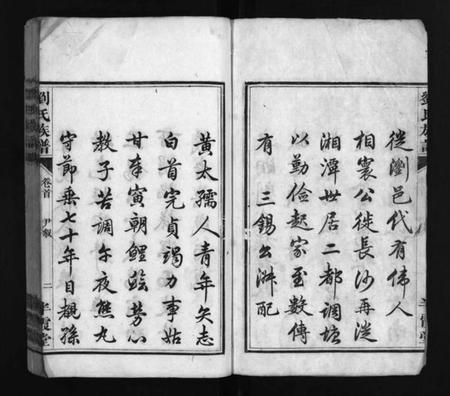 從瀏邑代有偉人
相襄公徙長沙再從
湘潭世居二都調塘
以勤儉起家至數傳
有三錫公淋配
黃太孺人青年矢志
白首完貞竭力事姑
甘奉寅朝鯉鱠芳心
教子苦調午夜熊丸
守節乘七十年目覩孫
劉氏族譜
卷首
尹敘
二